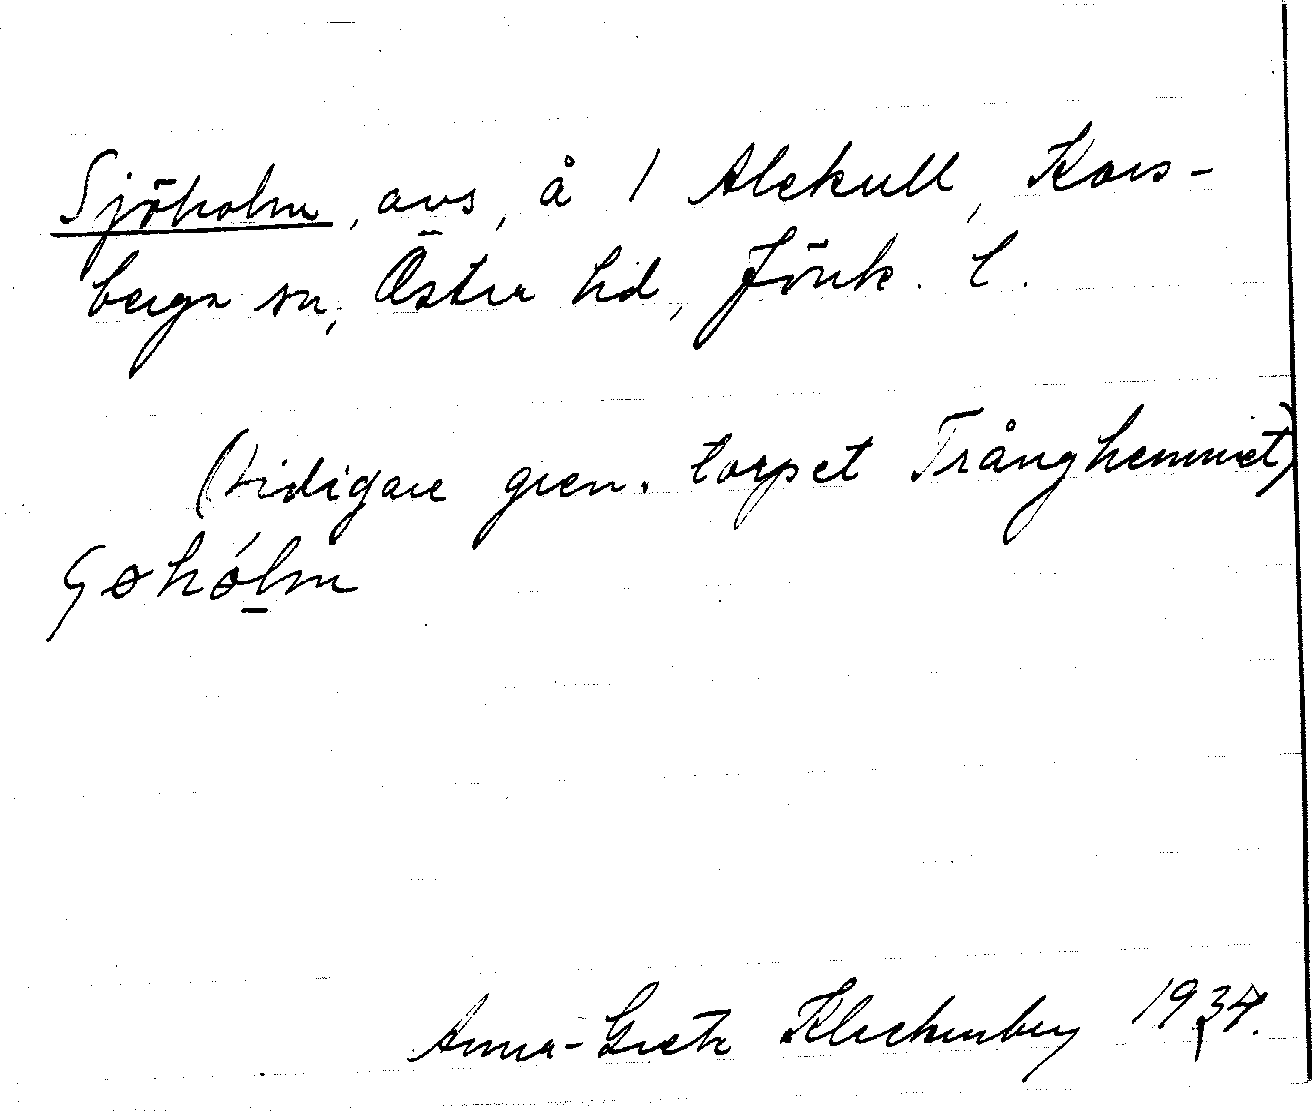 Sjöholm, avs, å 1 Alekull, Kors-
berga sn, Östra hd, Jönk. l.
(tidigare gren. torpet Trånghemmet)
Ꞔøhólm
Anna-Greta Kleckenberg 1934.